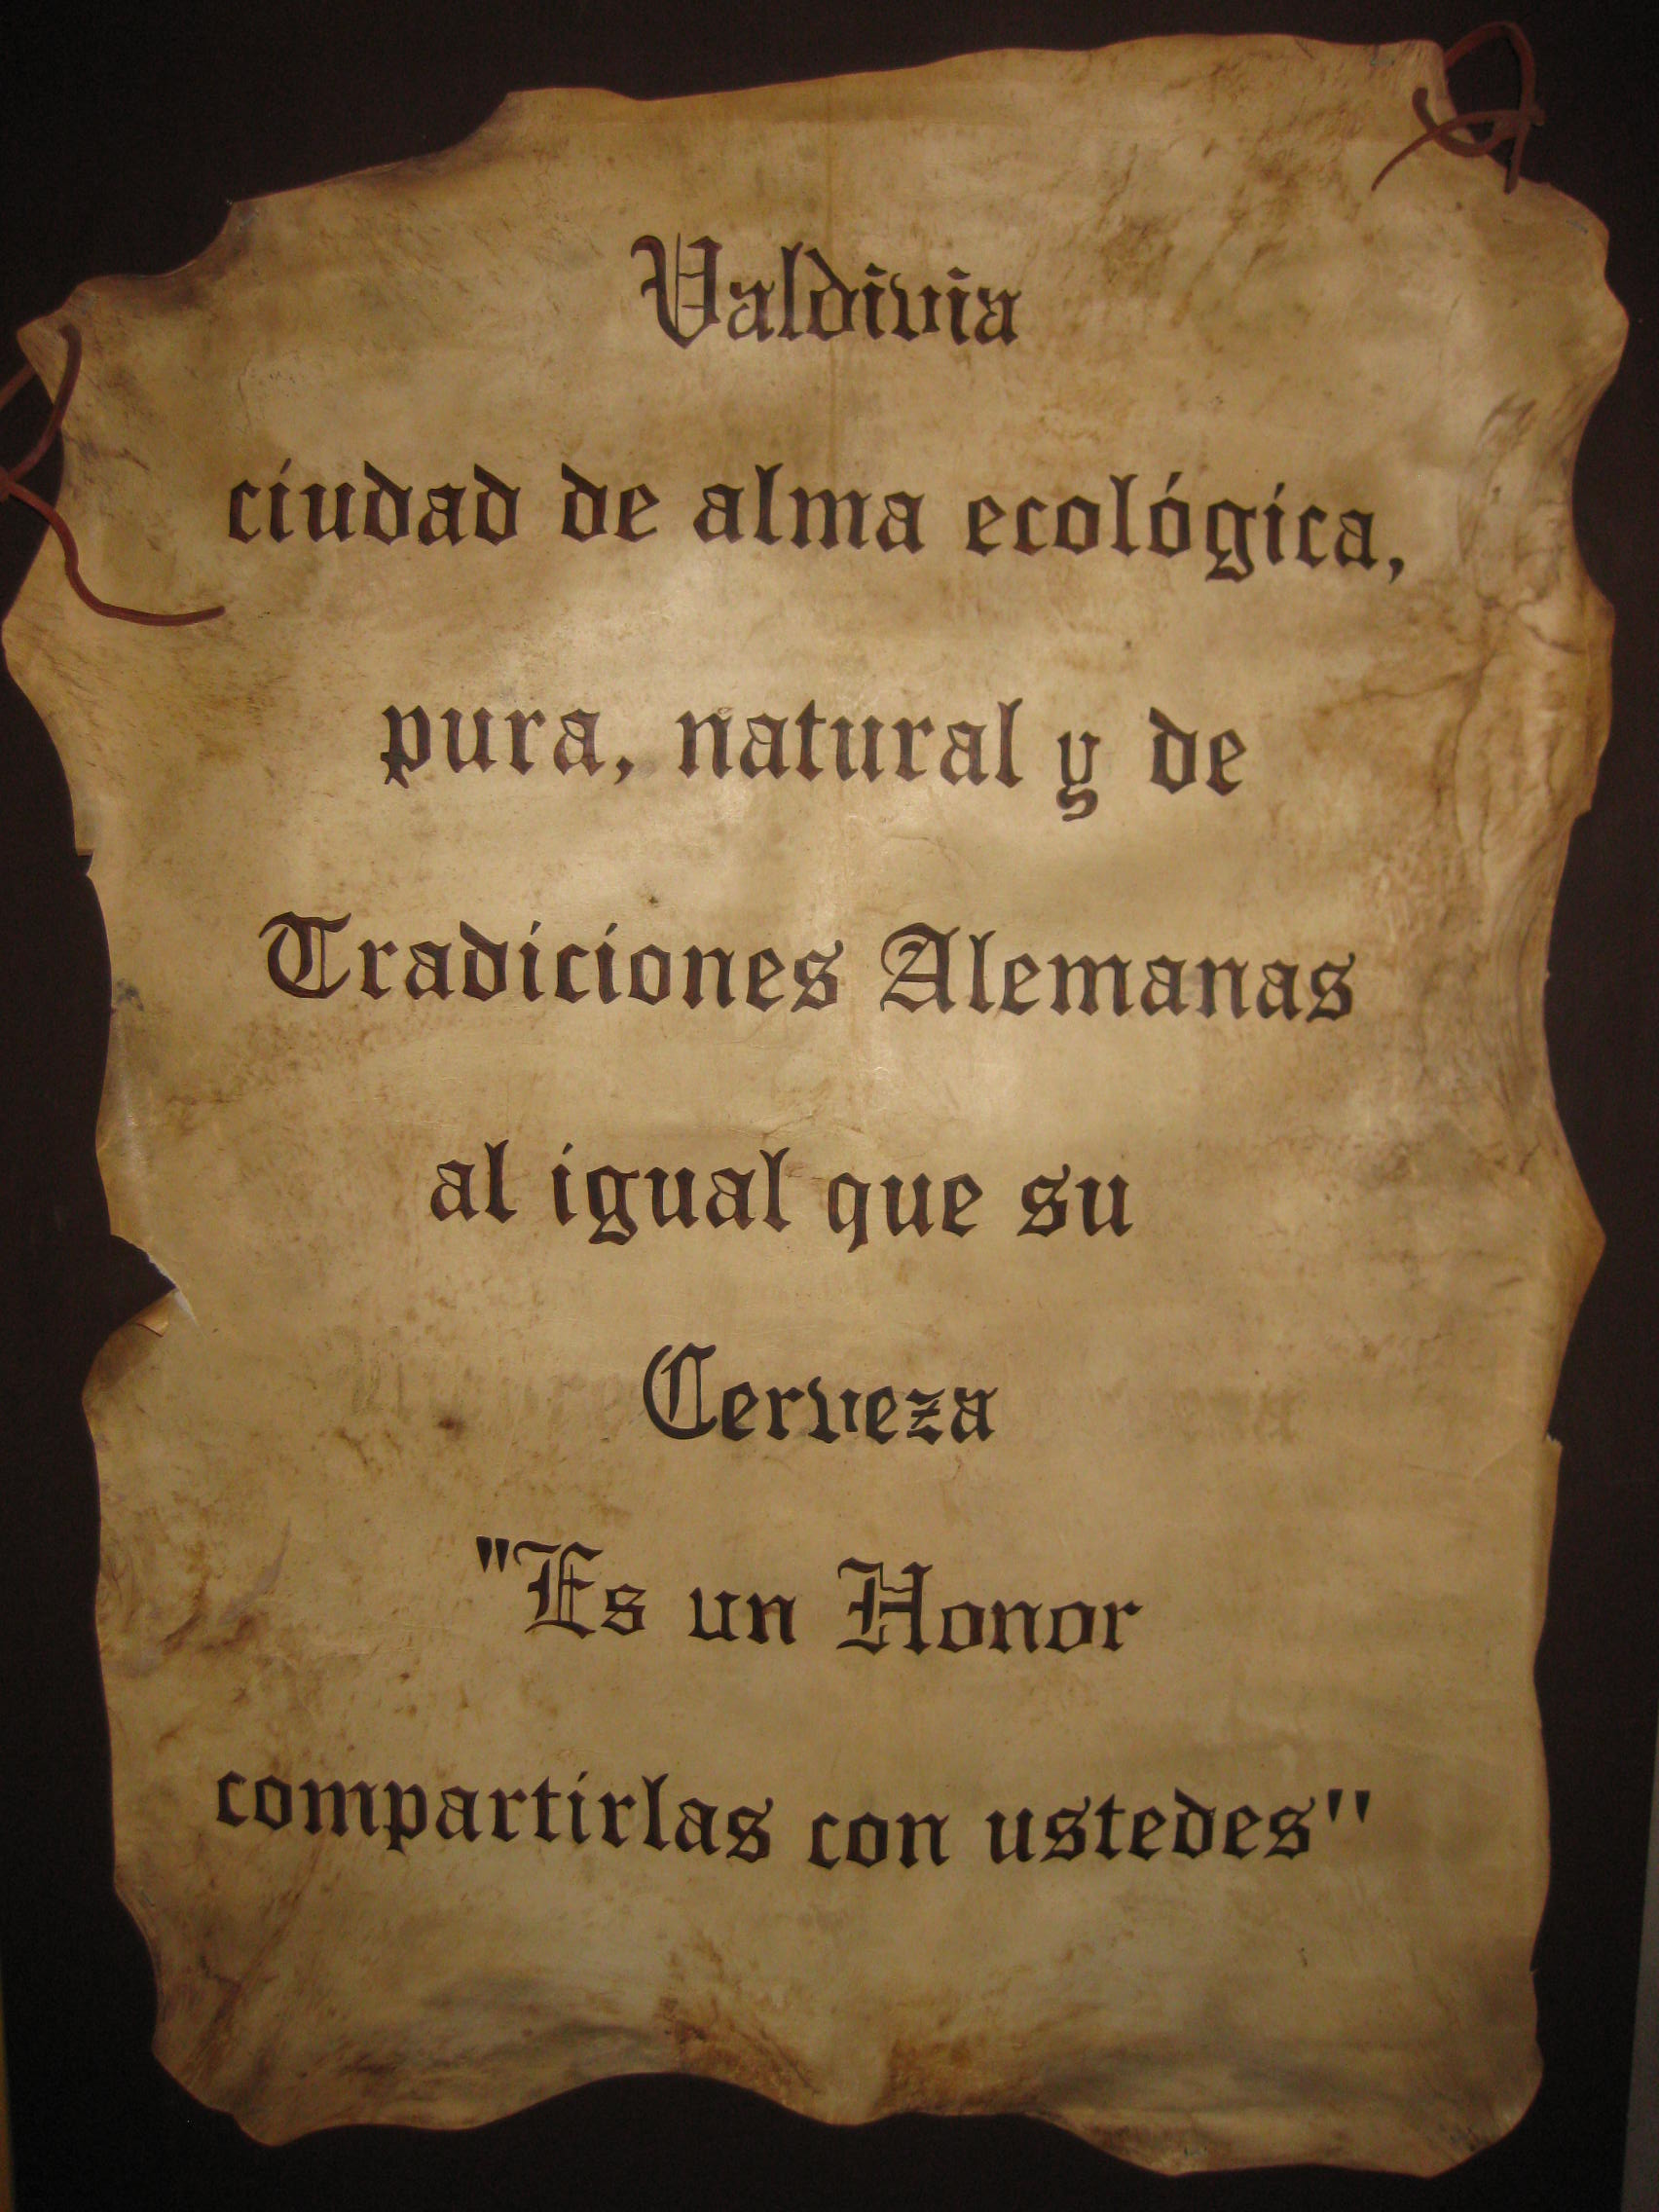 Valdivia
ciudad de alma ecológica,
pura, natural y de
Tradiciones Alemanas
al igual que su
Cerveza
"Es un Honor
compartirlas con ustedes"